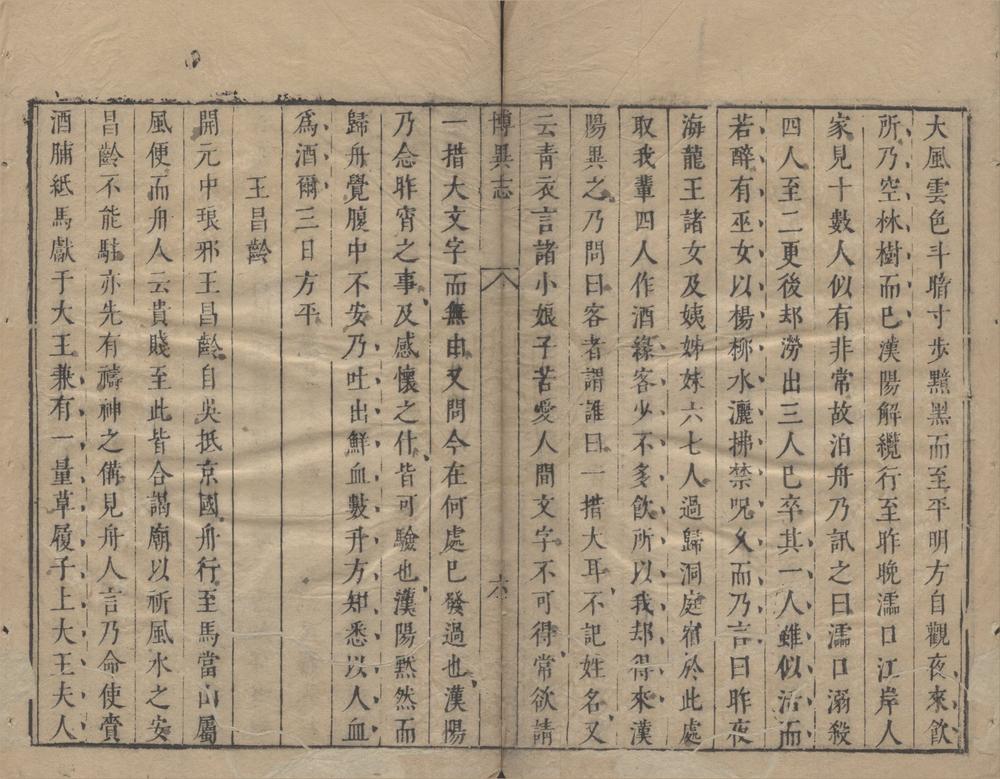 大風雲色斗暗寸步黯黑而至平明方自觀夜來飲
所乃空林樹而已漢陽解纜行至昨晚濡口江岸人
家見十數人似有非常故泊舟乃訊之曰濡口溺殺
四人至二更後却澇出三人已卒其一人雖似活而
若醉有巫女以楊柳水灑拂禁呪久而乃言曰昨夜
海龍王諸女及姨姊妹六七人過歸洞庭宿於此處
取我輩四人作酒緣客少不多飲所以我却得來漢
陽異之乃問曰客者謂誰曰一措大耳不記姓名又
云青衣言諸小娘子苦愛人間文字不可得常欲請
博異志 六
一措大文字而無由又問今在何處已發過也漢陽
乃念昨宵之事及感懷之什皆可驗也漢陽默然而
歸舟覺腹中不安乃吐出鮮血數升方知悉以人血
爲酒爾三日方平
王昌齡
開元中琅邪王昌齡自吳抵京國舟行至馬當山屬
風便而舟人云貴賤至此皆合謁廟以祈風水之安
昌齡不能駐亦先有禱神之備見舟人言乃命使賫
酒脯紙馬獻于大王兼有一量草履子上大王夫人